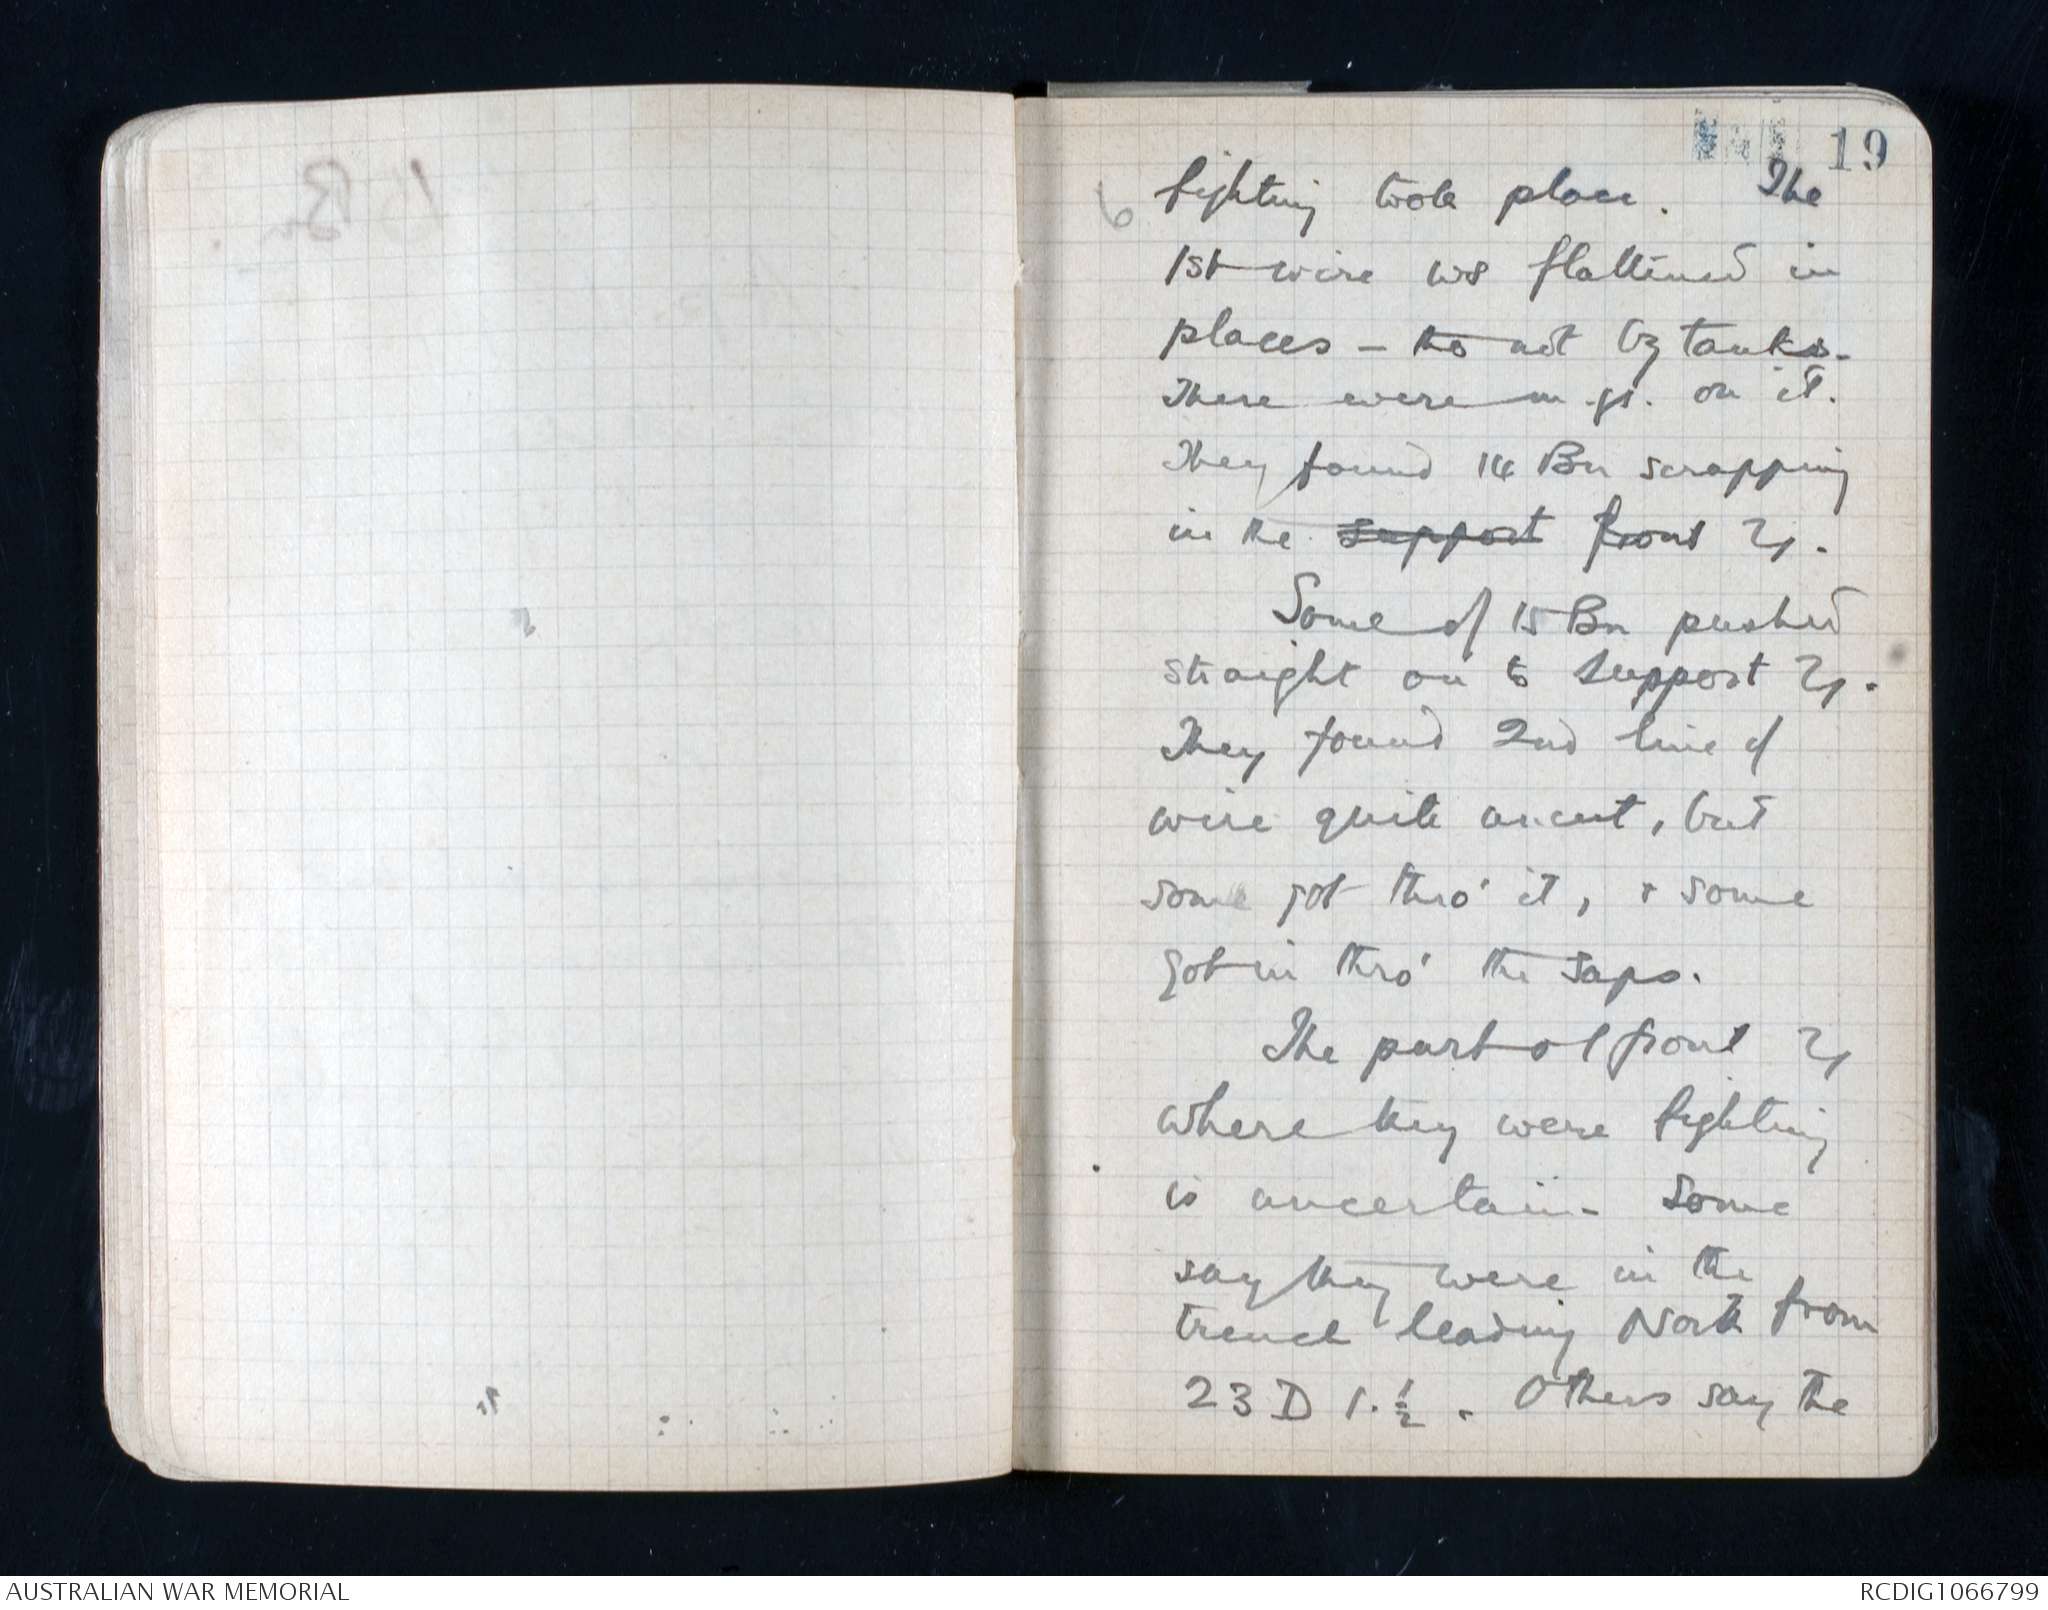 19
6
fighting took place. The
1st wire ws flattened in
places – tho not by tanks.
There were m.gs. on it.
They found 14 Bn scrapping
in the support front
Some of 15 Bn pushed
straight on to support
They found 2nd line of
wire quite uncut, but
some got thro' it, & some
got in thro' the saps.
The part of front
where they were fighting
is uncertain – Some
say they were in the
trench leading North from
23 D 1.½. Others say the
AUSTRALIAN WAR MEMORIAL
RCDIG1066799